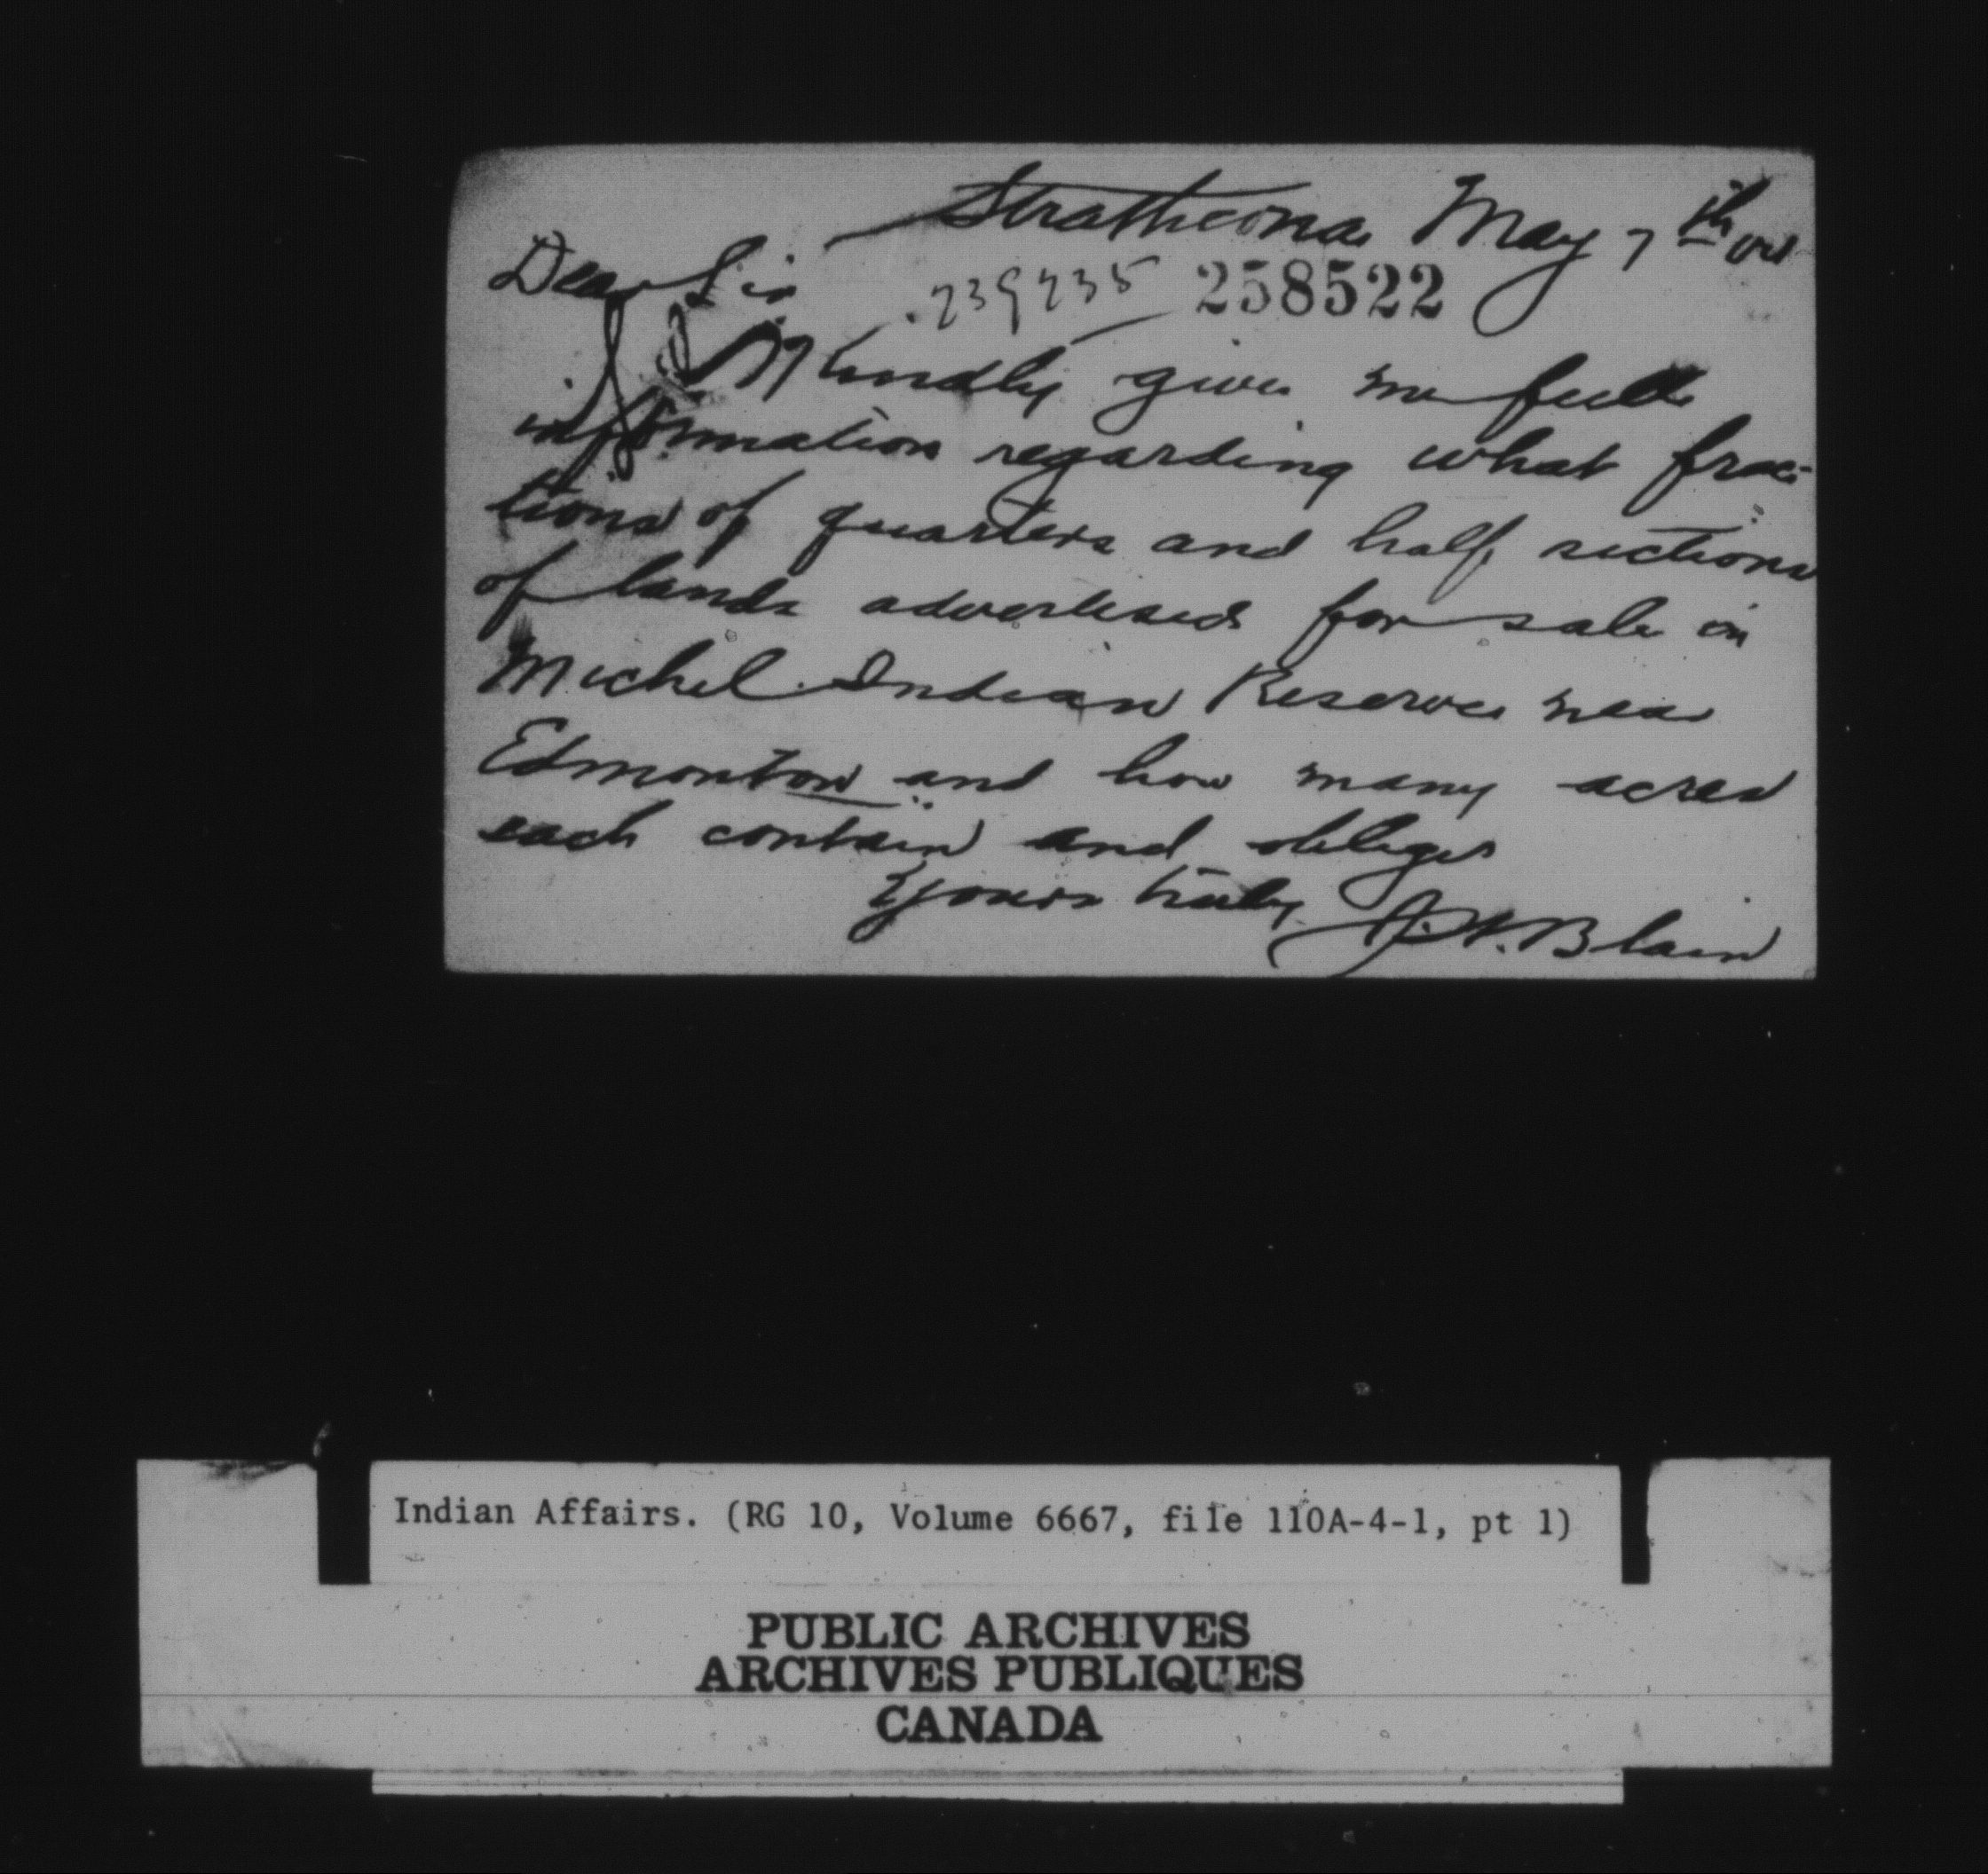 Strathcona May 7th
Dear Sir
239235 258522
Kindly give me full
information regarding what frac-
tions of quarters and half sections
of lands advertised for sale in
Michel Indian Reserve near
Edmonton and how many acres
each contain and oblige
Yours truly Blain
Indian Affairs. (RG 10, Volume 6667, file 110A-4-1, pt 1)
PUBLIC ARCHIVES
ARCHIVES PUBLIQUES
CANADA